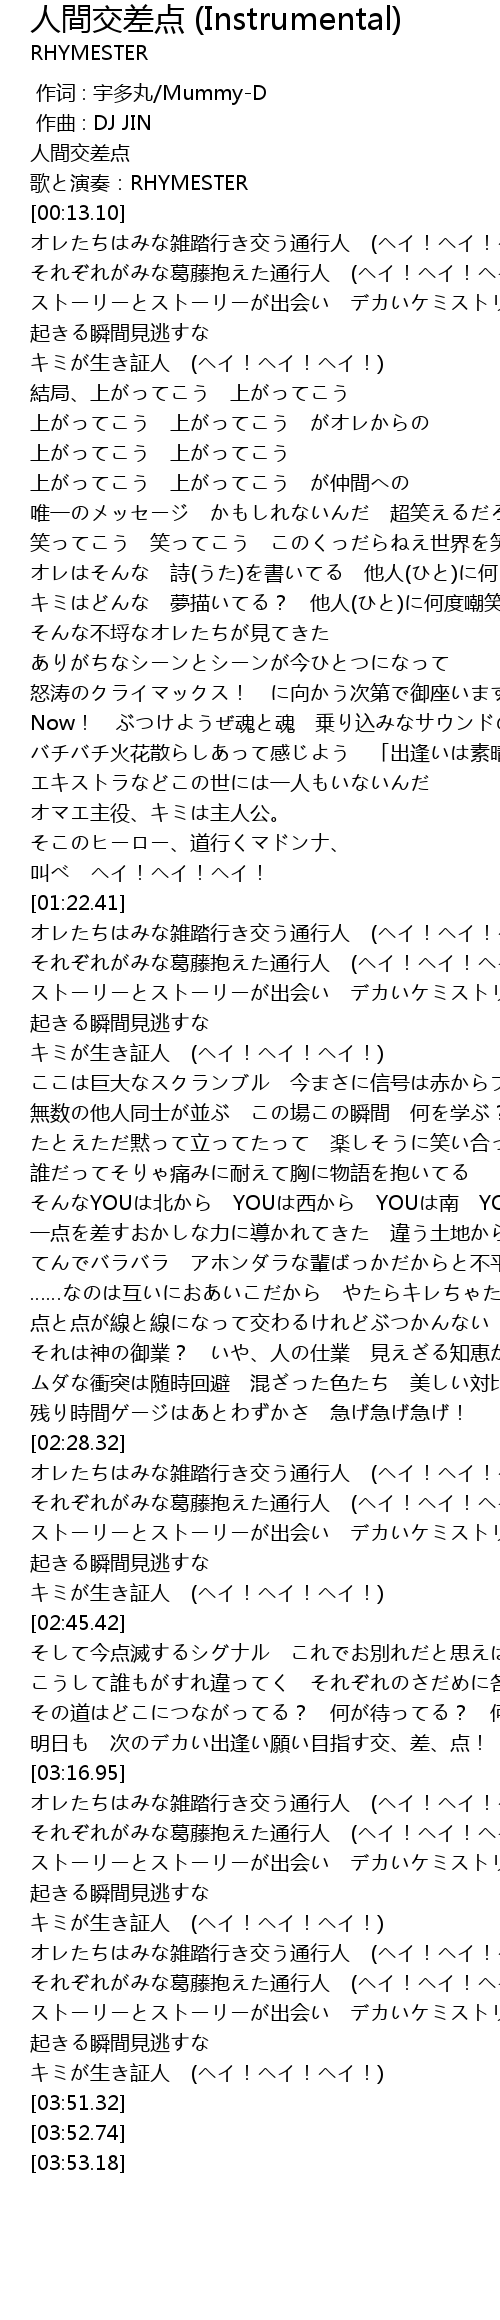 人間交差点 (Instrumental)
RHYMESTER
作词 : 宇多丸/Mummy-D
作曲 : DJ JIN
人間交差点
歌と演奏：RHYMESTER
[00:13.10]
オレたちはみな雑踏行き交う通行人　(ヘイ！ヘイ！
それぞれがみな葛藤抱えた通行人　(ヘイ！ヘイ！
ストーリーとストーリーが出会い　デカいケミストリ
起きる瞬間見逃すな
キミが生き証人　(ヘイ！ヘイ！ヘイ！)
結局、上がってこう　上がってこう
上がってこう　上がってこう　がオレからの
上がってこう　上がってこう
上がってこう　上がってこう　が仲間への
唯一のメッセージ　かもしれないんだ　超笑えるだろ
笑ってこう　笑ってこう　このくっだらねえ世界を笑
オレはそんな　詩(うた)を書いてる　他人(ひと)に何
キミはどんな　夢描いてる？　他人(ひと)に何度嘲笑
そんな不埒なオレたちが見てきた
ありがちなシーンとシーンが今ひとつになって
怒涛のクライマックス！　に向かう次第で御座います
Now！　ぶつけようぜ魂と魂　乗り込みなサウンドの
バチバチ火花散らしあって感じよう　「出逢いは素晴
エキストラなどこの世には一人もいないんだ
オマエ主役、キミは主人公。
そこのヒーロー、道行くマドンナ、
叫べ　ヘイ！ヘイ！ヘイ！
[01:22.41]
オレたちはみな雑踏行き交う通行人　(ヘイ！ヘイ！
それぞれがみな葛藤抱えた通行人　(ヘイ！ヘイ！
ストーリーとストーリーが出会い　デカいケミストリ
起きる瞬間見逃すな
キミが生き証人　(ヘイ！ヘイ！ヘイ！)
ここは巨大なスクランブル　今まさに信号は赤から
無数の他人同士が並ぶ　この場この瞬間　何を学ぶ？
たとえただ黙って立ってたって　楽しそうに笑い合っ
誰だってそりゃ痛みに耐えて胸に物語を抱いてる
そんなYOUは北から　YOUは西から　YOUは南　YO
一点を差すおかしな力に導かれてきた　違う土地から
てんでバラバラ　アホンダラな輩ばっかだからと不平
……なのは互いにおあいこだから　やたらキレちゃだ
点と点が線と線になって交わるけれどぶつかんない
それは神の御業？　いや、人の仕業　見えざる知恵が
ムダな衝突は随時回避　混ざった色たち　美しい対比
残り時間ゲージはあとわずかさ　急げ急げ急げ！
[02:28.32]
オレたちはみな雑踏行き交う通行人　(ヘイ！ヘイ！
それぞれがみな葛藤抱えた通行人　(ヘイ！ヘイ！
ストーリーとストーリーが出会い　デカいケミストリ
起きる瞬間見逃すな
キミが生き証人　(ヘイ！ヘイ！ヘイ！)
[02:45.42]
そして今点滅するシグナル　これでお別れだと思えば
こうして誰もがすれ違ってく　それぞれのさだめに各
その道はどこにつながってる？　何が待ってる？　何
明日も　次のデカい出逢い願い目指す交、差、点！
[03:16.95]
オレたちはみな雑踏行き交う通行人　(ヘイ！ヘイ！
それぞれがみな葛藤抱えた通行人　(ヘイ！ヘイ！
ストーリーとストーリーが出会い　デカいケミストリ
起きる瞬間見逃すな
キミが生き証人　(ヘイ！ヘイ！ヘイ！)
オレたちはみな雑踏行き交う通行人　(ヘイ！ヘイ！
それぞれがみな葛藤抱えた通行人　(ヘイ！ヘイ！
ストーリーとストーリーが出会い　デカいケミストリ
起きる瞬間見逃すな
キミが生き証人　(ヘイ！ヘイ！ヘイ！)
[03:51.32]
[03:52.74]
[03:53.18]